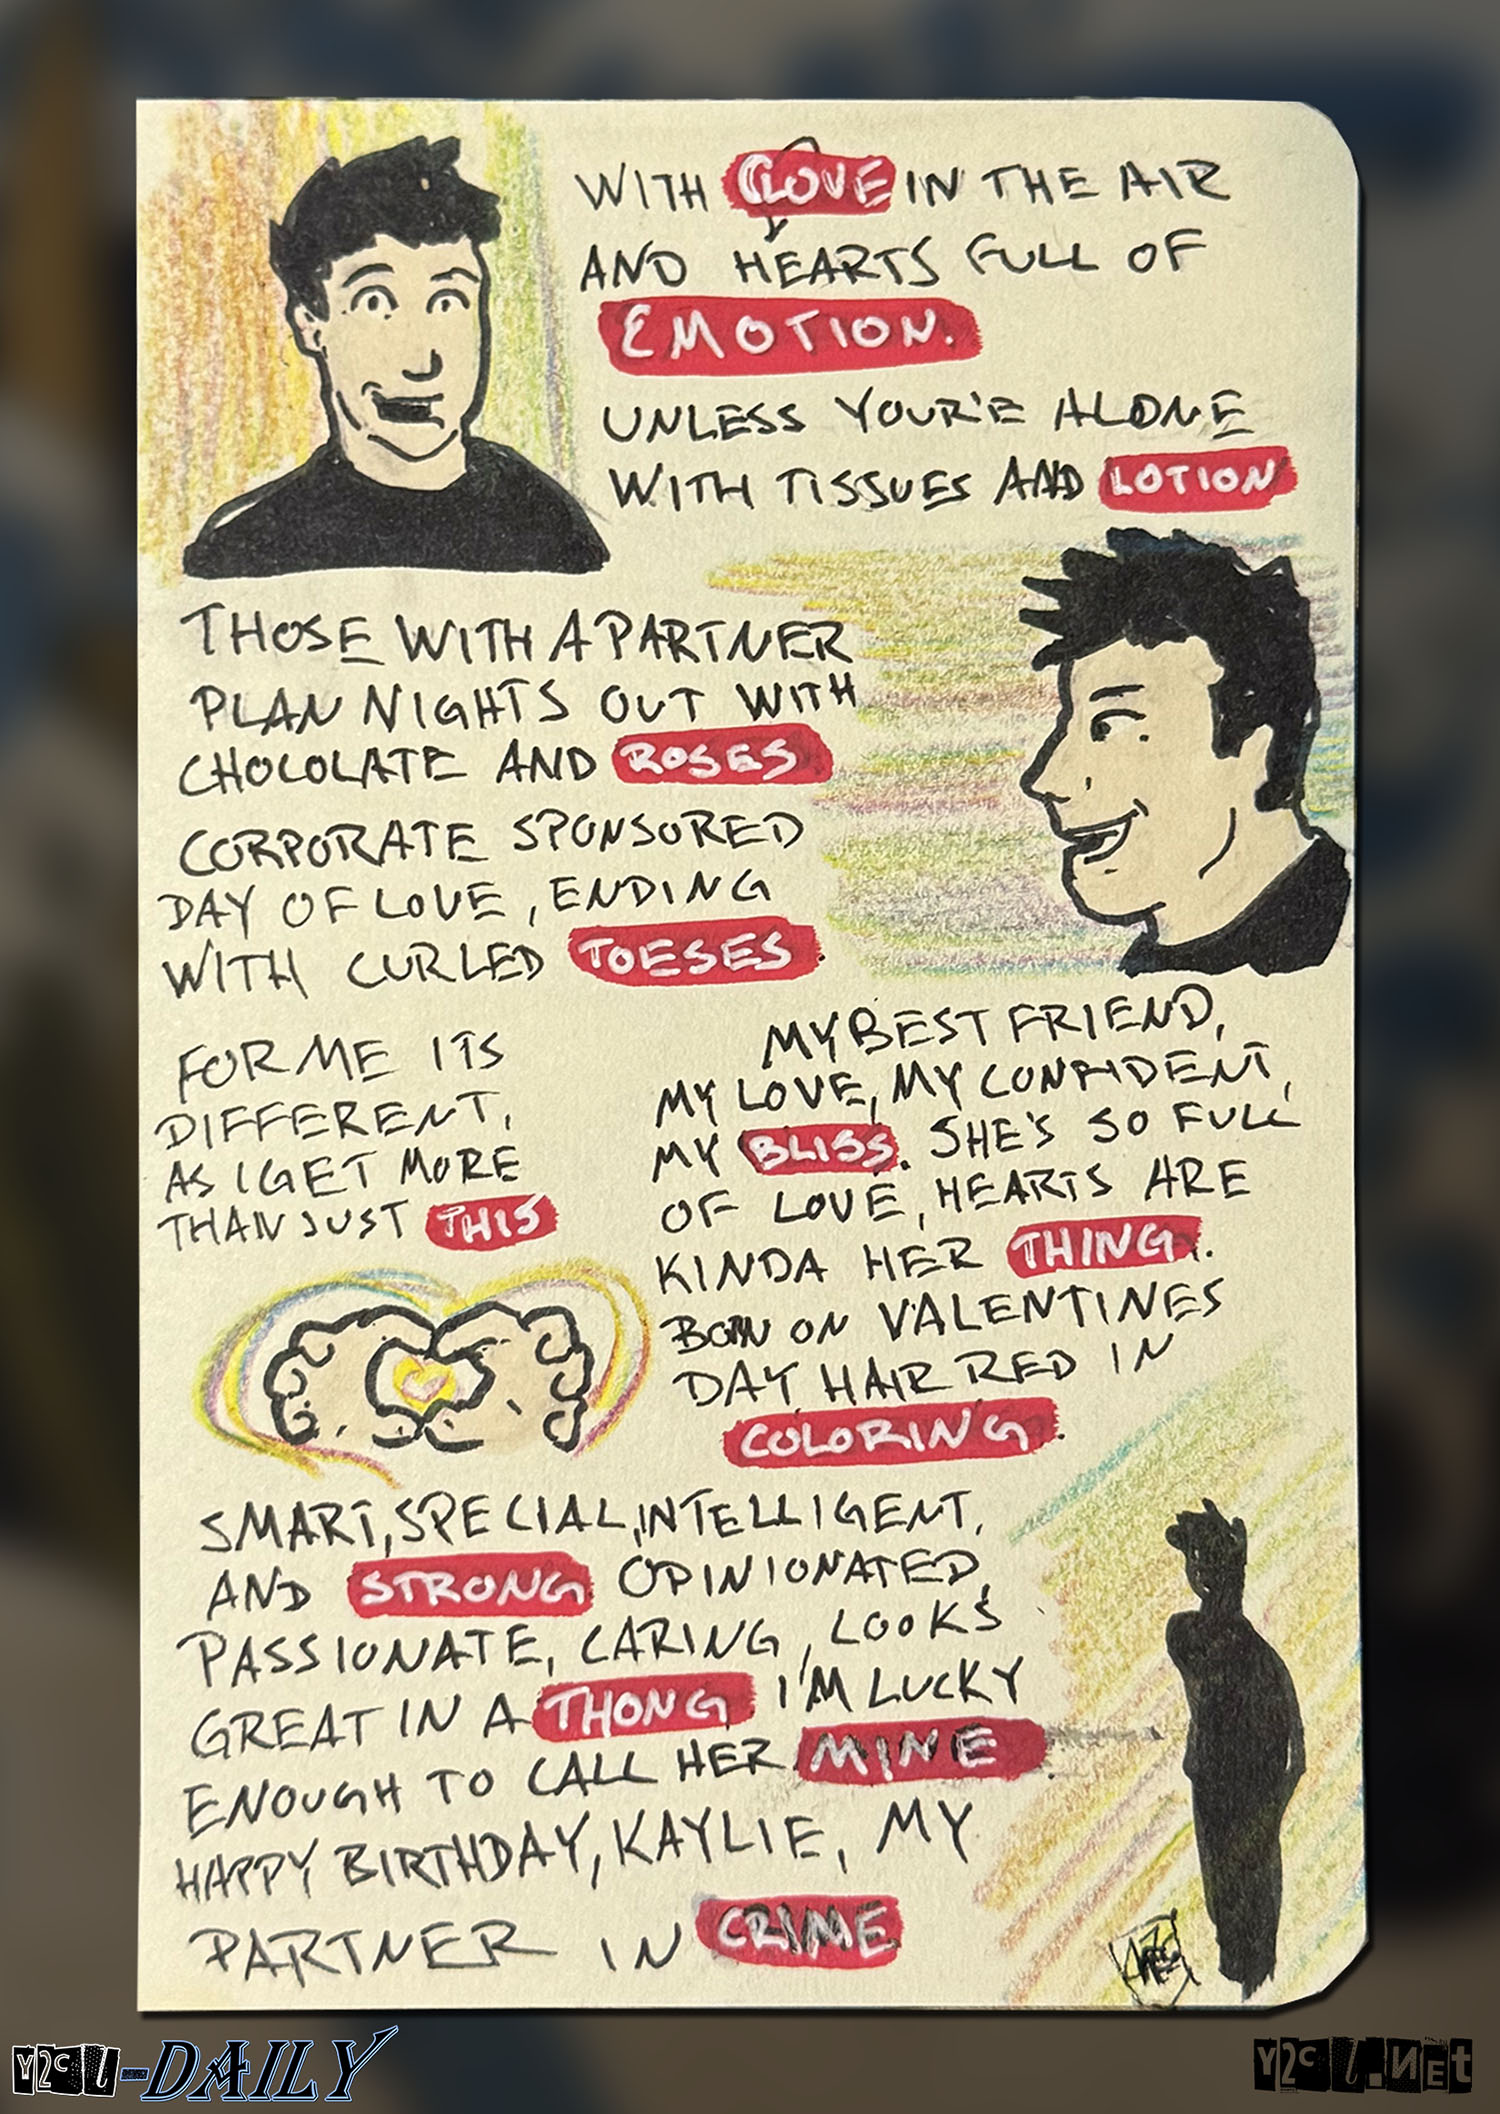 WITH LOVE IN THE AIR
AND HEARTS FULL OF
EMOTION.
UNLESS YOUR'E ALONE
WITH TISSUES AND LOTION
THOSE WITH A PARTNER
PLAN NIGHTS OUT WITH
CHOCOLATE AND ROSES
CORPORATE SPONSORED
DAY OF LOVE, ENDING
WITH CURLED TOESES.
FOR ME ITS
DIFFERENT,
AS I GET MORE
THAN JUST THIS
MY BEST FRIEND,
MY LOVE, MY CONFIDENT,
MY BLISS. SHE'S SO FULL
OF LOVE, HEARTS ARE
KINDA HER THING.
BORN ON VALENTINES
DAY, HAIR RED IN
COLORING.
SMART, SPECIAL, INTELLIGENT,
AND STRONG OPINIONATED,
PASSIONATE, CARING, LOOKS
GREAT IN A THONG I'M LUCKY
ENOUGH TO CALL HER MINE.
HAPPY BIRTHDAY, KAYLIE, MY
PARTNER IN CRIME
Y2CL-DAILY
Y2CL.NET